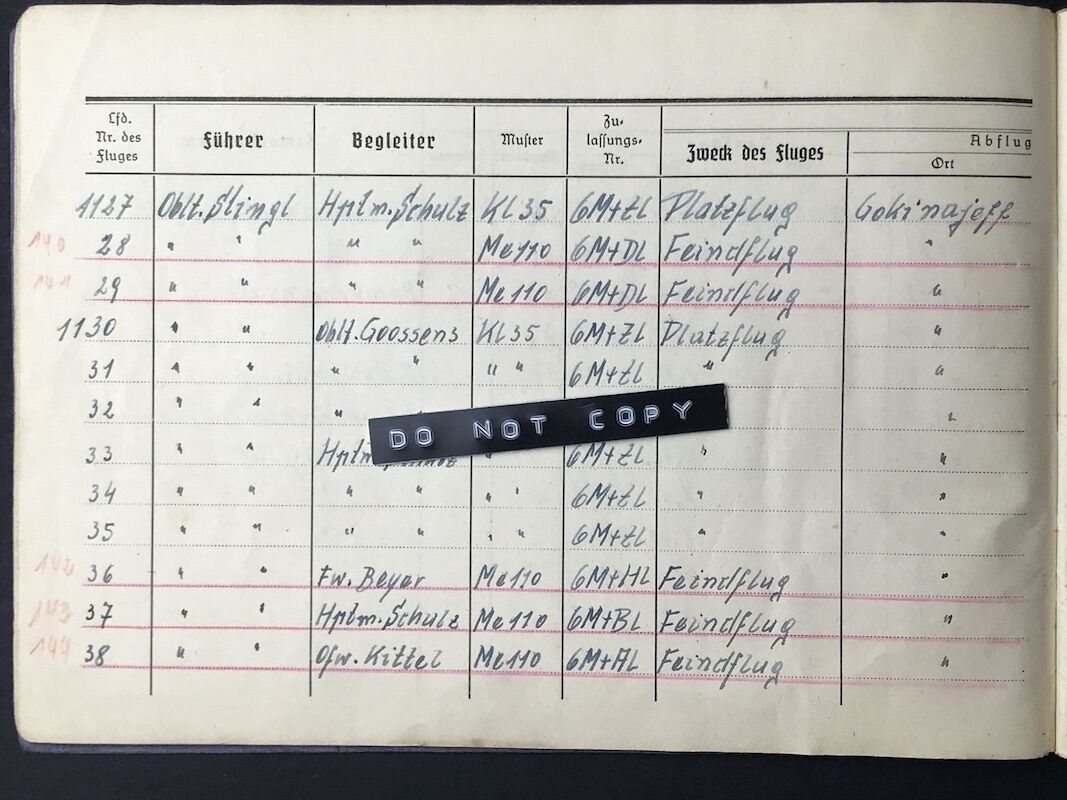 Lfd. Nr. des Fluges Führer Begleiter Muster Zu- lassungs- Nr. Zweck des Fluges Abflug Ort
1127 Oblt. Stingl Hptm. Schulz Kl 35 6M+ZL Platzflug Gokinajeff
140 28 " " " " Me 110 6M+DL Feindflug "
141 29 " " " " Me 110 6M+DL Feindflug "
1130 " " Oblt. Goossens Kl 35 6M+ZL Platzflug "
31 " " " " " " 6M+ZL " "
32 " " " "
DO NOT COPY
33 " " Hptm. " 6M+ZL " "
34 " " " " " " 6M+ZL " "
35 " " " " " " 6M+ZL " "
142 36 " " Fw. Beyer Me 110 6M+HL Feindflug "
143 37 " " Hptm. Schulz Me 110 6M+BL Feindflug "
144 38 " " Ofw. Kittel Me 110 6M+AL Feindflug "